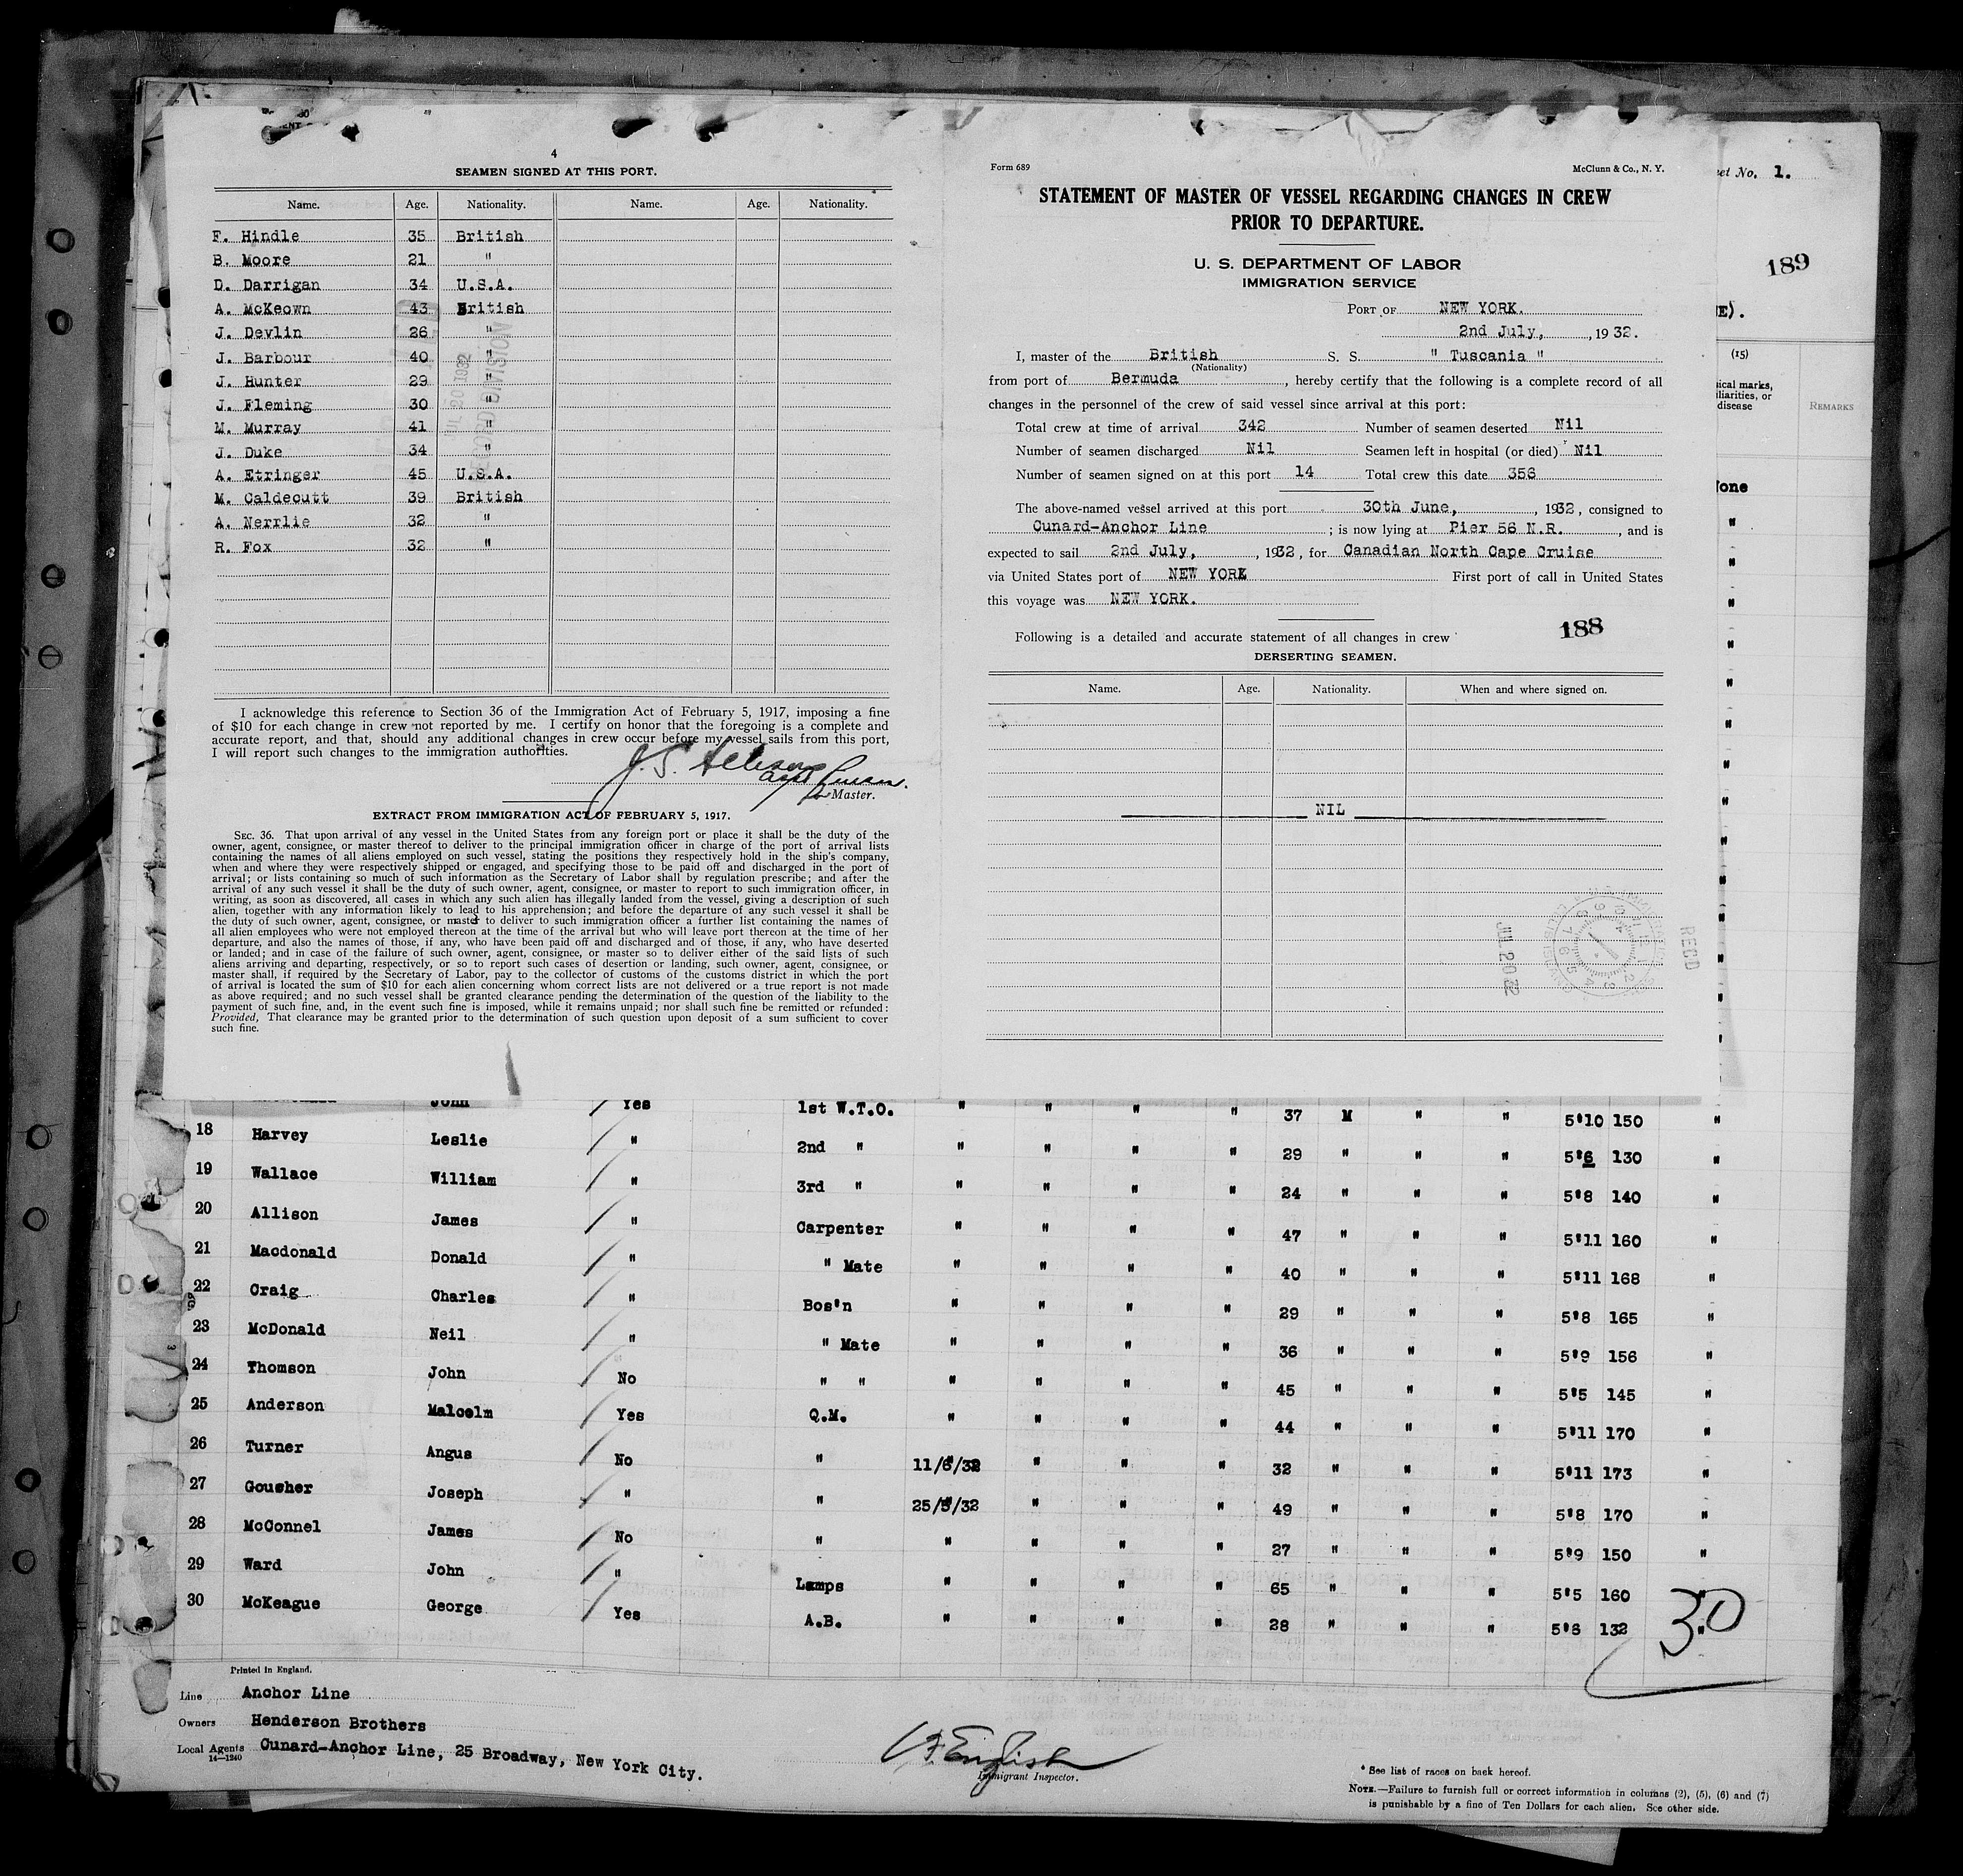 4
SEAMEN SIGNED AT THIS PORT.
Name. Age. Nationality. Name. Age. Nationality.
F. Hindle 35 British
B. Moore 21 "
D. Darrigan 34 U.S.A.
A. McKeown 43 British
J. Devlin 26 "
J. Barbour 40 "
J. Hunter 29 "
J. Fleming 30 "
M. Murray 41 "
J. Duke 34 "
A. Etringer 45 U.S.A.
M. Caldecutt 39 British
A. Nerrlie 32 "
R. Fox 32 "
I acknowledge this reference to Section 36 of the Immigration Act of February 5, 1917, imposing a fine
of $10 for each change in crew not reported by me. I certify on honor that the foregoing is a complete and
accurate report, and that, should any additional changes in crew occur before my vessel sails from this port,
I will report such changes to the immigration authorities.
Master.
EXTRACT FROM IMMIGRATION ACT OF FEBRUARY 5, 1917.
SEC. 36. That upon arrival of any vessel in the United States from any foreign port or place it shall be the duty of the
owner, agent, consignee, or master thereof to deliver to the principal immigration officer in charge of the port of arrival lists
containing the names of all aliens employed on such vessel, stating the positions they respectively hold in the ship's company,
when and where they were respectively shipped or engaged, and specifying those to be paid off and discharged in the port of
arrival; or lists containing so much of such information as the Secretary of Labor shall by regulation prescribe; and after the
arrival of any such vessel it shall be the duty of such owner, agent, consignee, or master to report to such immigration officer, in
writing, as soon as discovered, all cases in which any such alien has illegally landed from the vessel, giving a description of such
alien, together with any information likely to lead to his apprehension; and before the departure of any such vessel it shall be
the duty of such owner, agent, consignee, or master to deliver to such immigration officer a further list containing the names of
all alien employees who were not employed thereon at the time of the arrival but who will leave port thereon at the time of her
departure, and also the names of those, if any, who have been paid off and discharged and of those, if any, who have deserted
or landed; and in case of the failure of such owner, agent, consignee, or master so to deliver either of the said lists of such
aliens arriving and departing, respectively, or so to report such cases of desertion or landing, such owner, agent, consignee, or
master shall, if required by the Secretary of Labor, pay to the collector of customs of the customs district in which the port
of arrival is located the sum of $10 for each alien concerning whom correct lists are not delivered or a true report is not made
as above required; and no such vessel shall be granted clearance pending the determination of the question of the liability to the
payment of such fine, and, in the event such fine is imposed, while it remains unpaid; nor shall such fine be remitted or refunded:
Provided, That clearance may be granted prior to the determination of such question upon deposit of a sum sufficient to cover
such fine.
Form 689 McClunn & Co., N. Y.
STATEMENT OF MASTER OF VESSEL REGARDING CHANGES IN CREW
PRIOR TO DEPARTURE.
U. S. DEPARTMENT OF LABOR
IMMIGRATION SERVICE
PORT OF NEW YORK.
2nd July, , 1932.
I, master of the British S. S. " Tuscania "
(Nationality)
from port of Bermuda , hereby certify that the following is a complete record of all
changes in the personnel of the crew of said vessel since arrival at this port:
Total crew at time of arrival 342 Number of seamen deserted Nil
Number of seamen discharged Nil Seamen left in hospital (or died) Nil
Number of seamen signed on at this port 14 Total crew this date 356
The above-named vessel arrived at this port 30th June, , 1932, consigned to
Cunard-Anchor Line ; is now lying at Pier 56 N.R. , and is
expected to sail 2nd July, , 1932, for Canadian North Cape Cruise
via United States port of NEW YORK First port of call in United States
this voyage was NEW YORK.
188
Following is a detailed and accurate statement of all changes in crew
DERSERTING SEAMEN.
Name. Age. Nationality. When and where signed on.
NIL
RECD
JUL 20 32
et No. 1.
189
E).
(15)
ical marks,
liarities, or
disease
REMARKS
one
John / Yes 1st W.T.O. " " " " 37 M " " 5'10 150 "
18 Harvey Leslie / " 2nd " " " " " 29 " " " 5'6 130 "
19 Wallace William / " 3rd " " " " " 24 " " " 5'8 140 "
20 Allison James / " Carpenter " " " " 47 " " " 5'11 160 "
21 Macdonald Donald / " " Mate " " " " 40 " " " 5'11 168 "
22 Craig Charles / " Bos'n " " " " 29 " " " 5'8 165 "
23 McDonald Neil / " " Mate " " " " 36 " " " 5'9 156 "
24 Thomson John / No " " " " " " 45 " " " 5'5 145 "
25 Anderson Malcolm / Yes Q.M. " " " " 44 " " " 5'11 170 "
26 Turner Angus / No " 11/6/32 " " " 32 " " " 5'11 173 "
27 Gousher Joseph / " " 25/5/32 " " " 49 " " " 5'8 170 "
28 McConnel James / No " " " " " 27 " " " 5'9 150 "
29 Ward John / " Lamps " " " " 65 " " " 5'5 160 "
30 McKeague George / Yes A.B. " " " " 28 " " " 5'6 132 "
30
Printed in England.
Line Anchor Line
Owners Henderson Brothers
Local Agents Cunard-Anchor Line, 25 Broadway, New York City.
14—1240
English
Immigrant Inspector.
* See list of races on back hereof.
NOTE.—Failure to furnish full or correct information in columns (2), (5), (6) and (7)
is punishable by a fine of Ten Dollars for each alien. See other side.